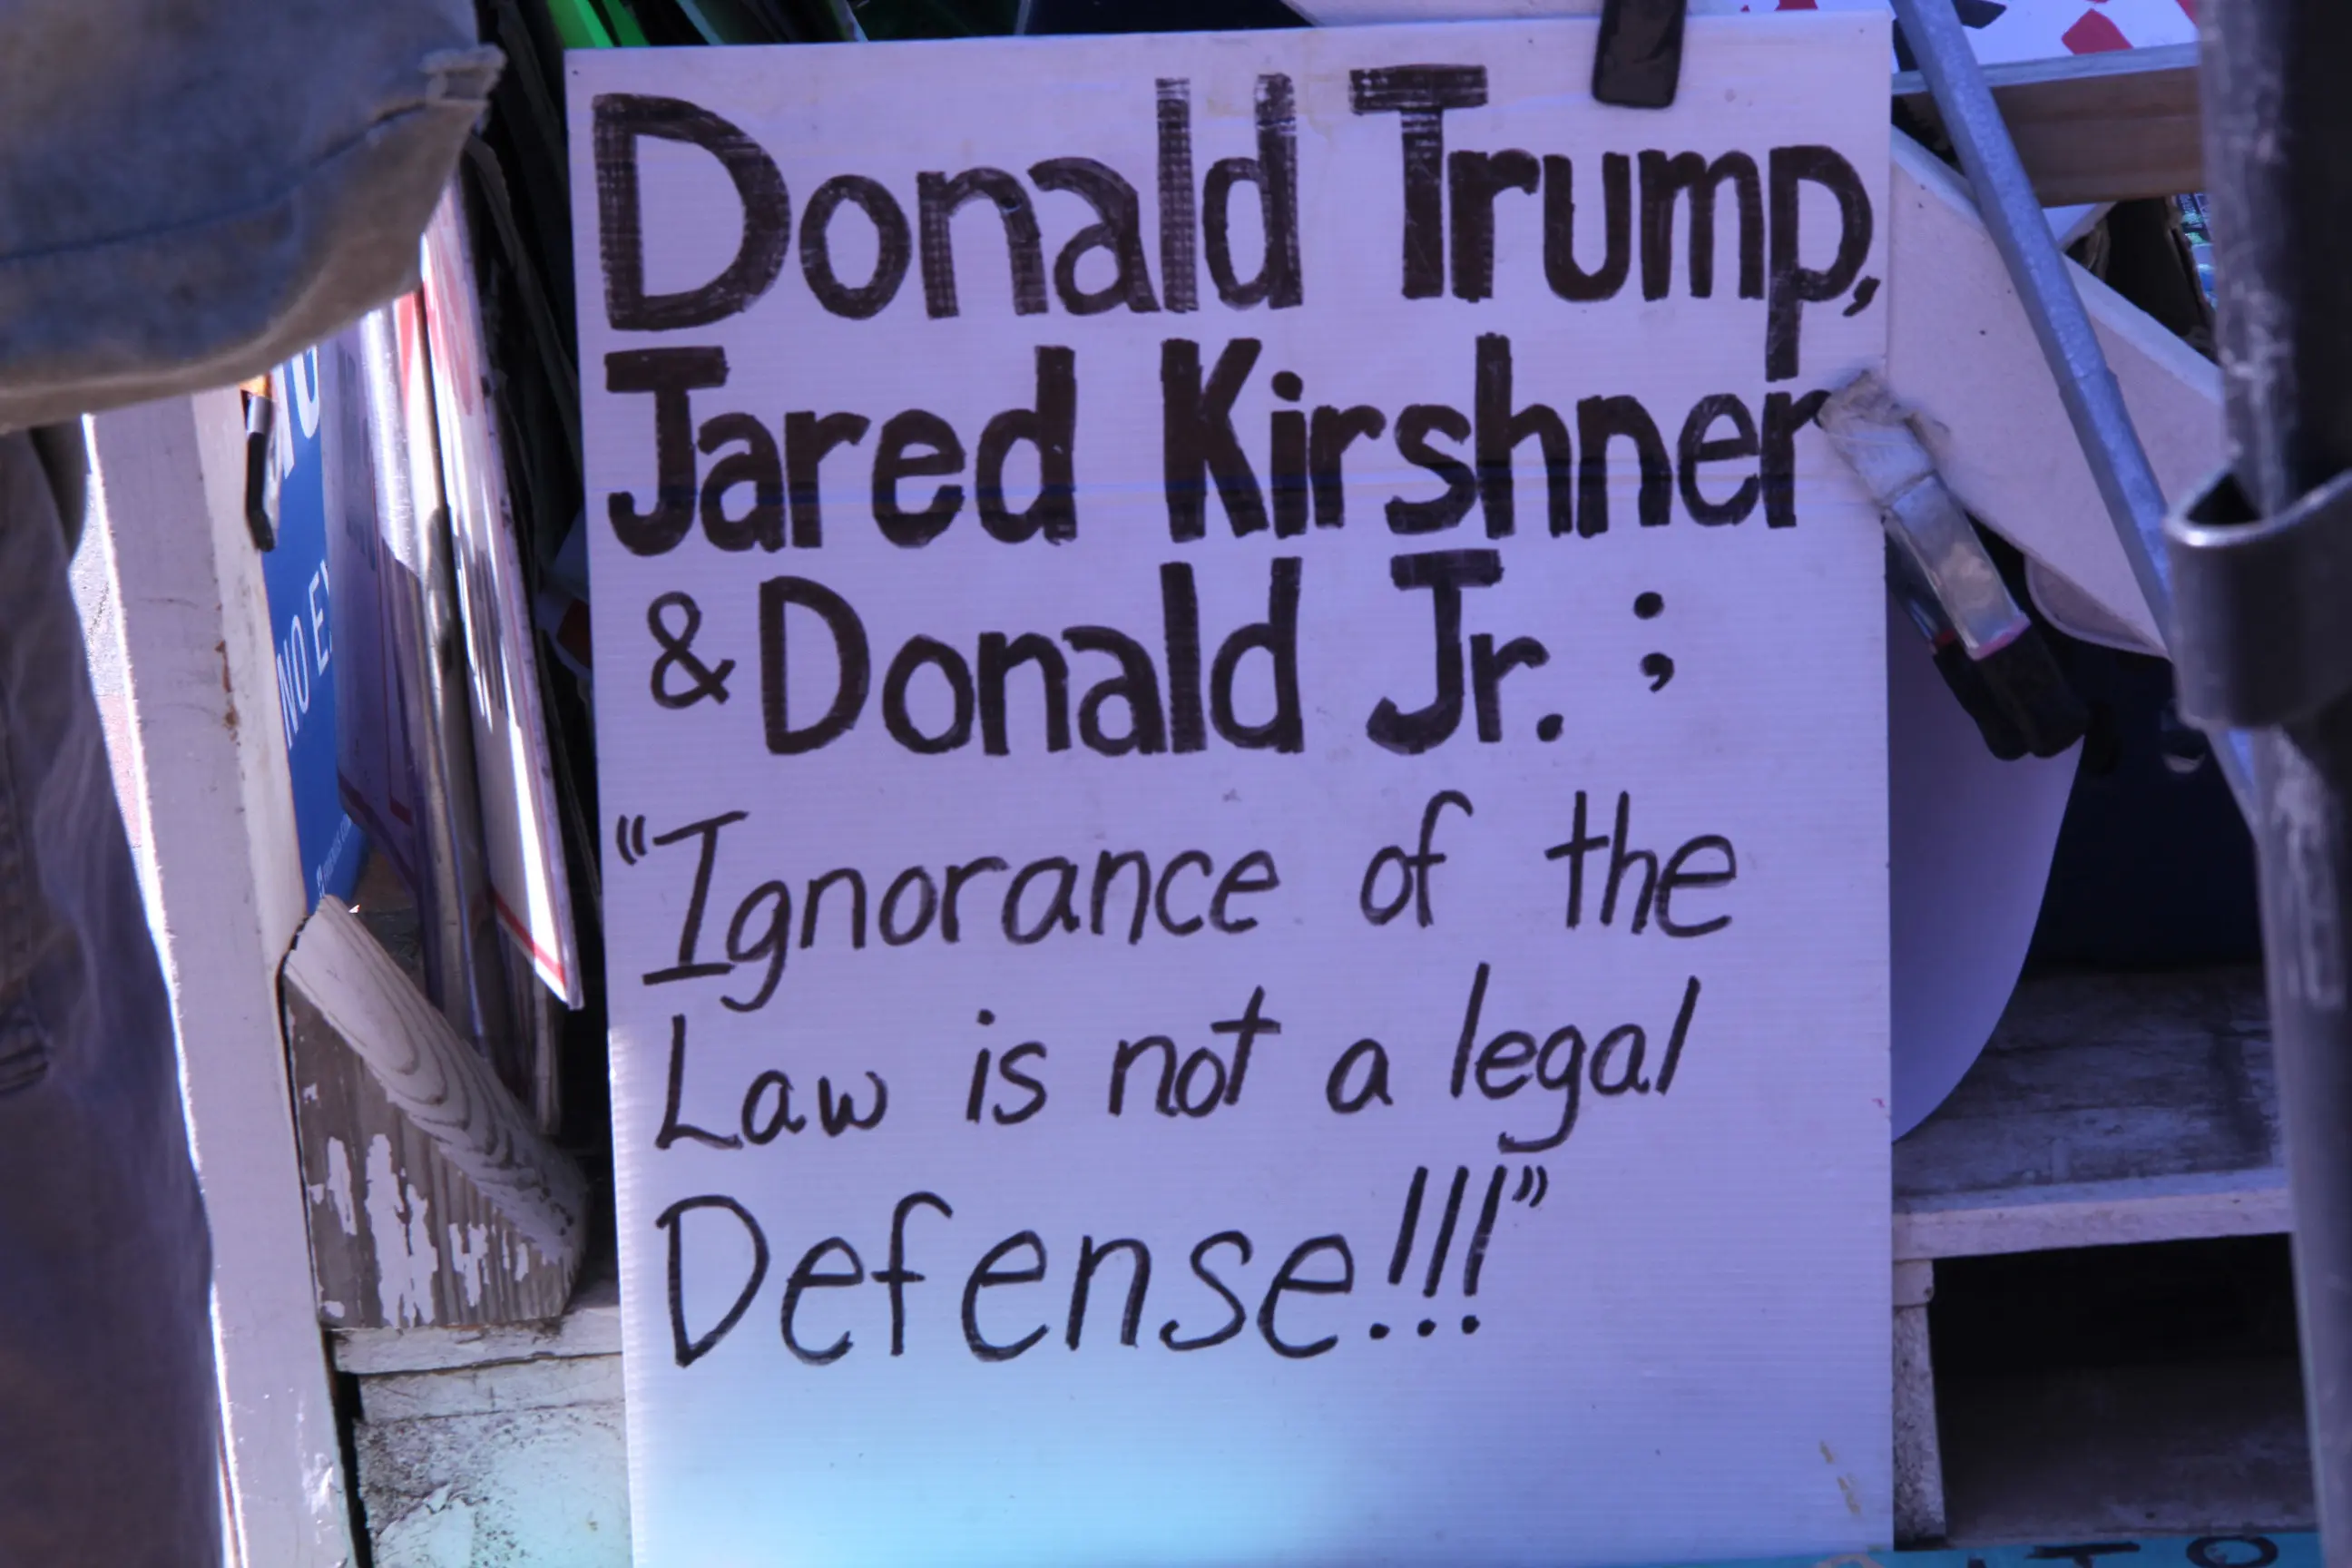 Donald Trump,
Jared Kirshner
& Donald Jr. ;
"Ignorance of the
Law is not a legal
Defense!!!"
NO